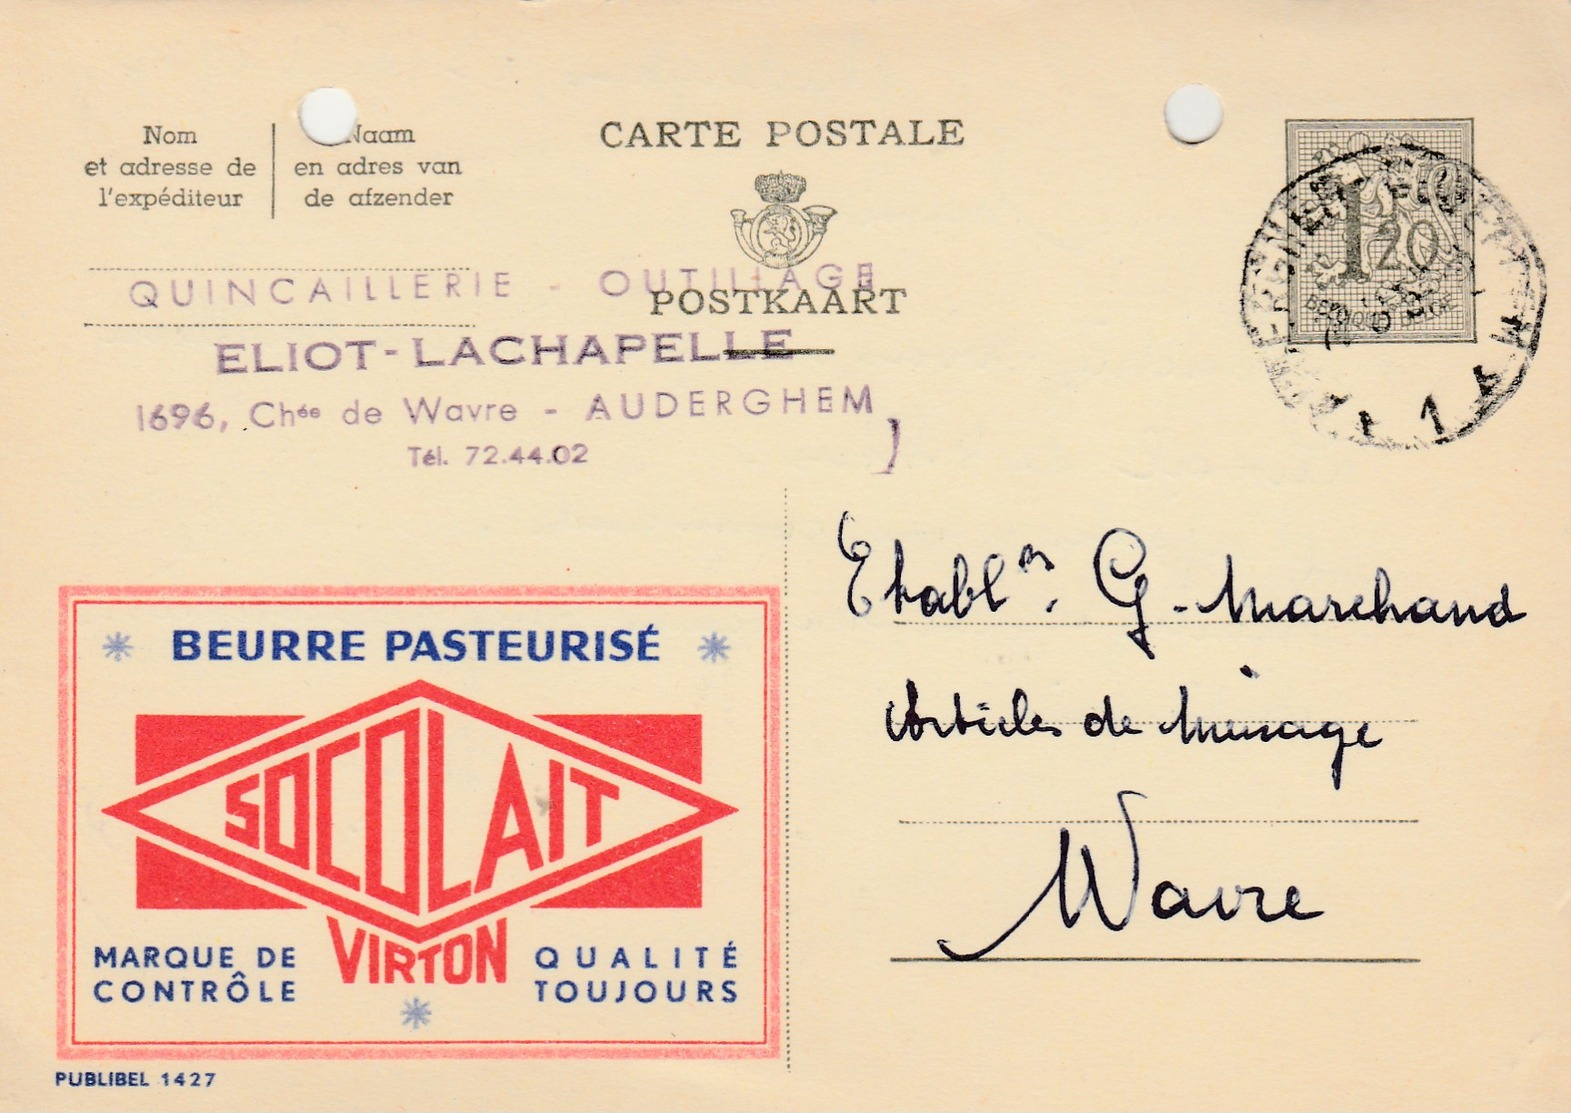 Nom
et adresse de
l'expéditeur
Naam
en adres van
de afzender
CARTE POSTALE
POSTKAART
1
20
BELGIQUE BELGIE
1
QUINCAILLERIE - OUTILLAGE
ELIOT-LACHAPELLE
1696, Chée de Wavre - AUDERGHEM
Tél. 72.44.02
BEURRE PASTEURISÉ
SOCOLAIT
VIRTON
MARQUE DE
CONTRÔLE
QUALITÉ
TOUJOURS
PUBLIBEL 1427
Etabl.ts G. Marchand
Articles de Ménage
Wavre